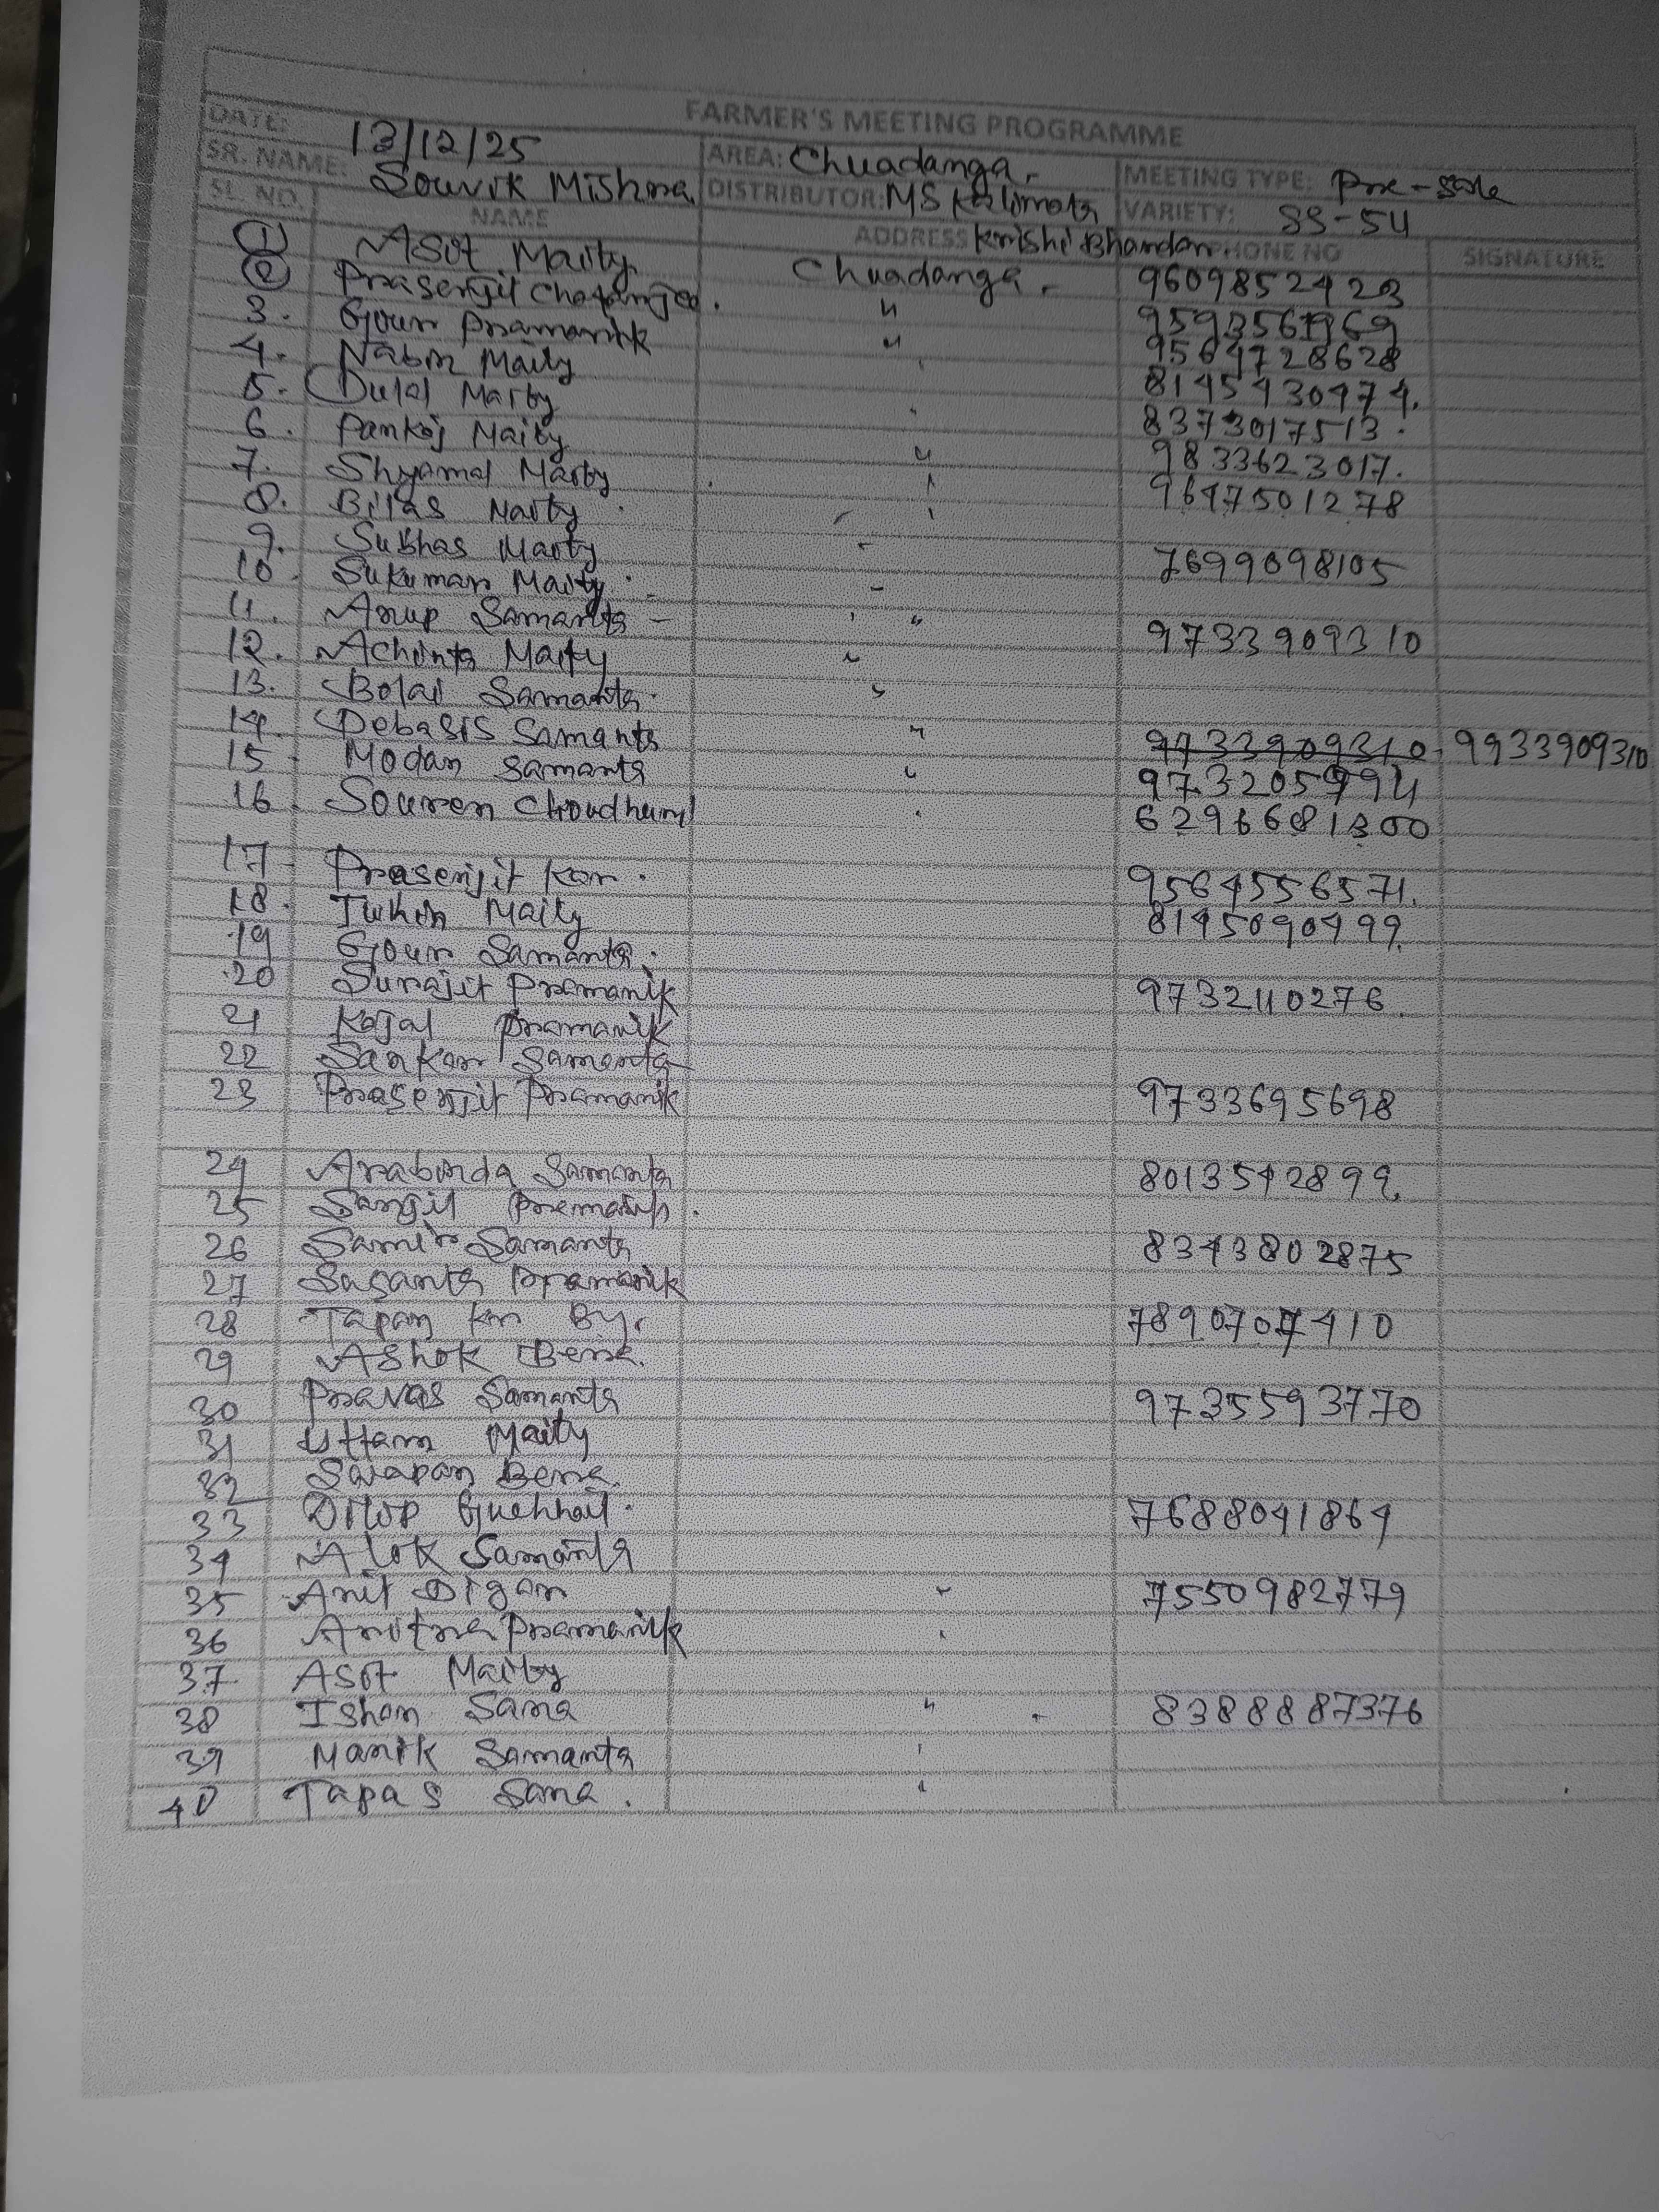 FARMER'S MEETING PROGRAMME
DATE: 13/12/25 AREA: Chuadanga. MEETING TYPE: Pre-sale
SR. NAME: Souvik Mishra DISTRIBUTOR: MS Kalimata Krishi Bhandar VARIETY: SS-54
SL. NO. NAME ADDRESS PHONE NO SIGNATURE
1 Asit Maity Chuadanga. 9609852423
2 Prasenjit Chatarjee. " 9593561969
3. Gour Pramanik " 9564728628
4. Nabin Maity 8145430474.
5. Dulal Maity 8373017513.
6. Pankaj Maity " 9833623017.
7. Shyamal Maity 9647501278
8. Bilas Maity
9. Subhas Maity 7699098105
10. Sukumar Maity
11. Arup Samanta - " 9733909310
12. Achinta Maity "
13. Bolai Samanta. "
14. Debasis Samanta " 9733909310 9933909310
15 Modan Samanta " 9732059994
16. Souren Choudhury 6296681300
17 - Prasenjit Kar. 9564556571.
18. Tuhin Maity 8145090499.
19 Gour Samanta.
20 Surajit Pramanik 9732110276.
21 Kajal Pramanik
22 Sankar Samanta
23 Prasenjit Pramanik 9733695698
24 Arabinda Samanta 8013542899.
25 Sanjit Pramanik.
26 Samir Samanta 8343802875
27 Susanta Pramanik
28 Tapan Kr 7890707410
29 Ashok Bera.
30 Pravas Samanta 9735593770
31 Uttam Maity
32 Swapan Bera.
33 Dilip 7688041864
34 Alok Samanta
35 Anit Digar " 7550982779
36 Pramanik
37 Asit Maity
38 Ishan Sana " 8388887376
39 Manik Samanta
40 Tapas Sana.